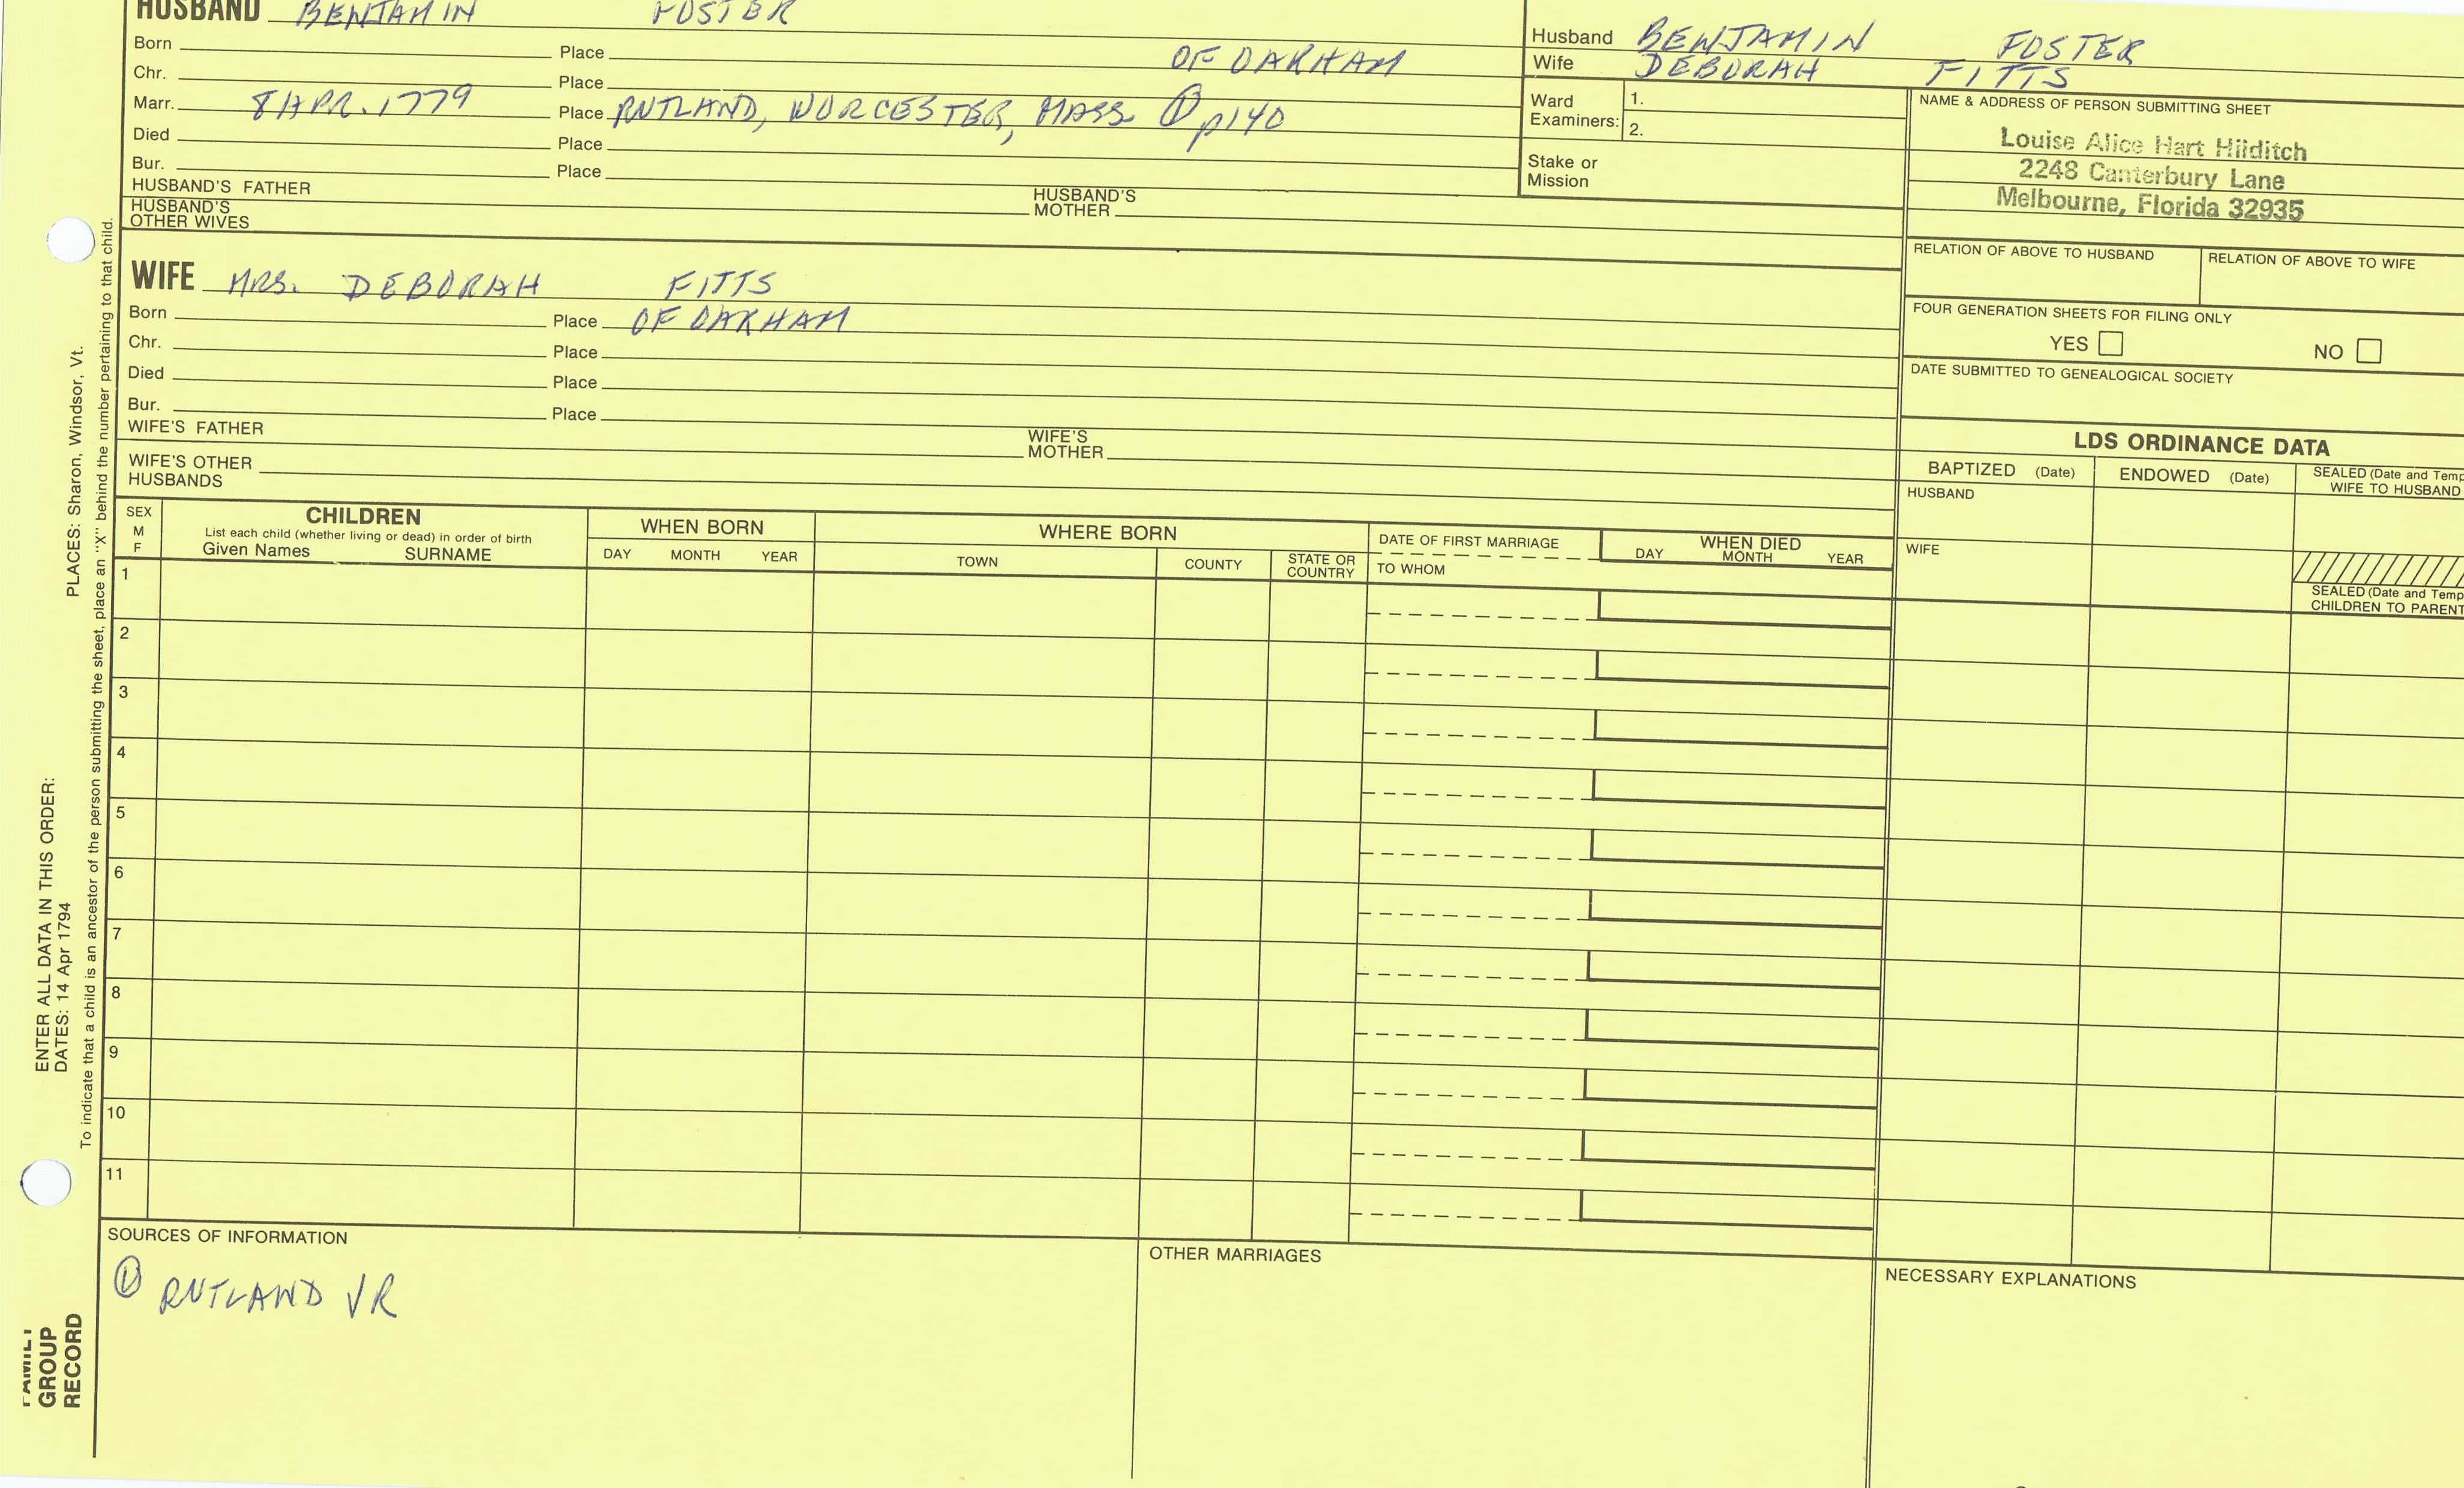 HUSBAND BENJAMIN FOSTER
Born Place OF OAKHAM
Chr. Place
Marr. 8 APR. 1779 Place RUTLAND, WORCESTER, MASS. ① p140
Died Place
Bur. Place
HUSBAND'S FATHER HUSBAND'S MOTHER
HUSBAND'S OTHER WIVES
Husband BENJAMIN FOSTER
Wife DEBORAH FITTS
Ward Examiners: 1.
2.
Stake or Mission
NAME & ADDRESS OF PERSON SUBMITTING SHEET
Louise Alice Hart Hilditch
2248 Canterbury Lane
Melbourne, Florida 32935
RELATION OF ABOVE TO HUSBAND RELATION OF ABOVE TO WIFE
FOUR GENERATION SHEETS FOR FILING ONLY
YES NO
DATE SUBMITTED TO GENEALOGICAL SOCIETY
WIFE MRS. DEBORAH FITTS
Born Place OF OAKHAM
Chr. Place
Died Place
Bur. Place
WIFE'S FATHER WIFE'S MOTHER
WIFE'S OTHER HUSBANDS
LDS ORDINANCE DATA
BAPTIZED (Date) ENDOWED (Date) SEALED (Date and Temp
WIFE TO HUSBAND
HUSBAND
WIFE
SEALED (Date and Temp
CHILDREN TO PARENT
SEX
M
F
CHILDREN
List each child (whether living or dead) in order of birth
Given Names SURNAME
WHEN BORN
DAY MONTH YEAR
WHERE BORN
TOWN COUNTY STATE OR COUNTRY
DATE OF FIRST MARRIAGE
TO WHOM
WHEN DIED
DAY MONTH YEAR
1
2
3
4
5
6
7
8
9
10
11
SOURCES OF INFORMATION
① RUTLAND VR
OTHER MARRIAGES
NECESSARY EXPLANATIONS
FAMILY
GROUP
RECORD
ENTER ALL DATA IN THIS ORDER:
DATES: 14 Apr 1794 PLACES: Sharon, Windsor, Vt.
To indicate that a child is an ancestor of the person submitting the sheet, place an "X" behind the number pertaining to that child.